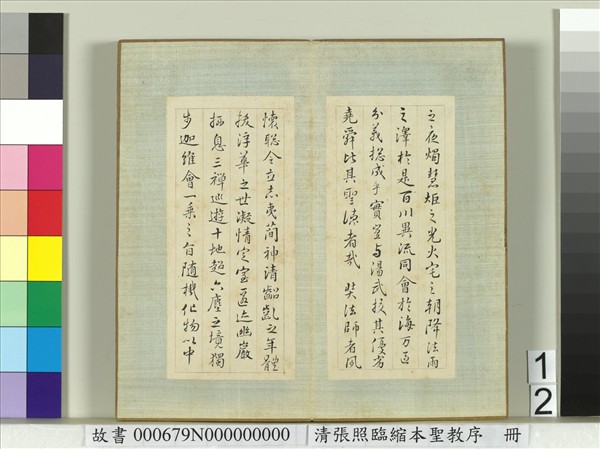 之夜燭慧炬之光火宅之朝降法雨
之澤於是百川異流同會於海万區
分義揔成乎實豈与湯武挍其優劣
堯舜比其聖德者哉 奘法師者夙
懷聡令立志夷簡神清齠齔之年體
拔浮華之世凝情定室匿迹幽巖
栖息三禪巡遊十地超六塵之境獨
步迦維會一乘之旨隨機化物以中
1
2
故書 000679N000000000 清張照臨縮本聖教序 冊